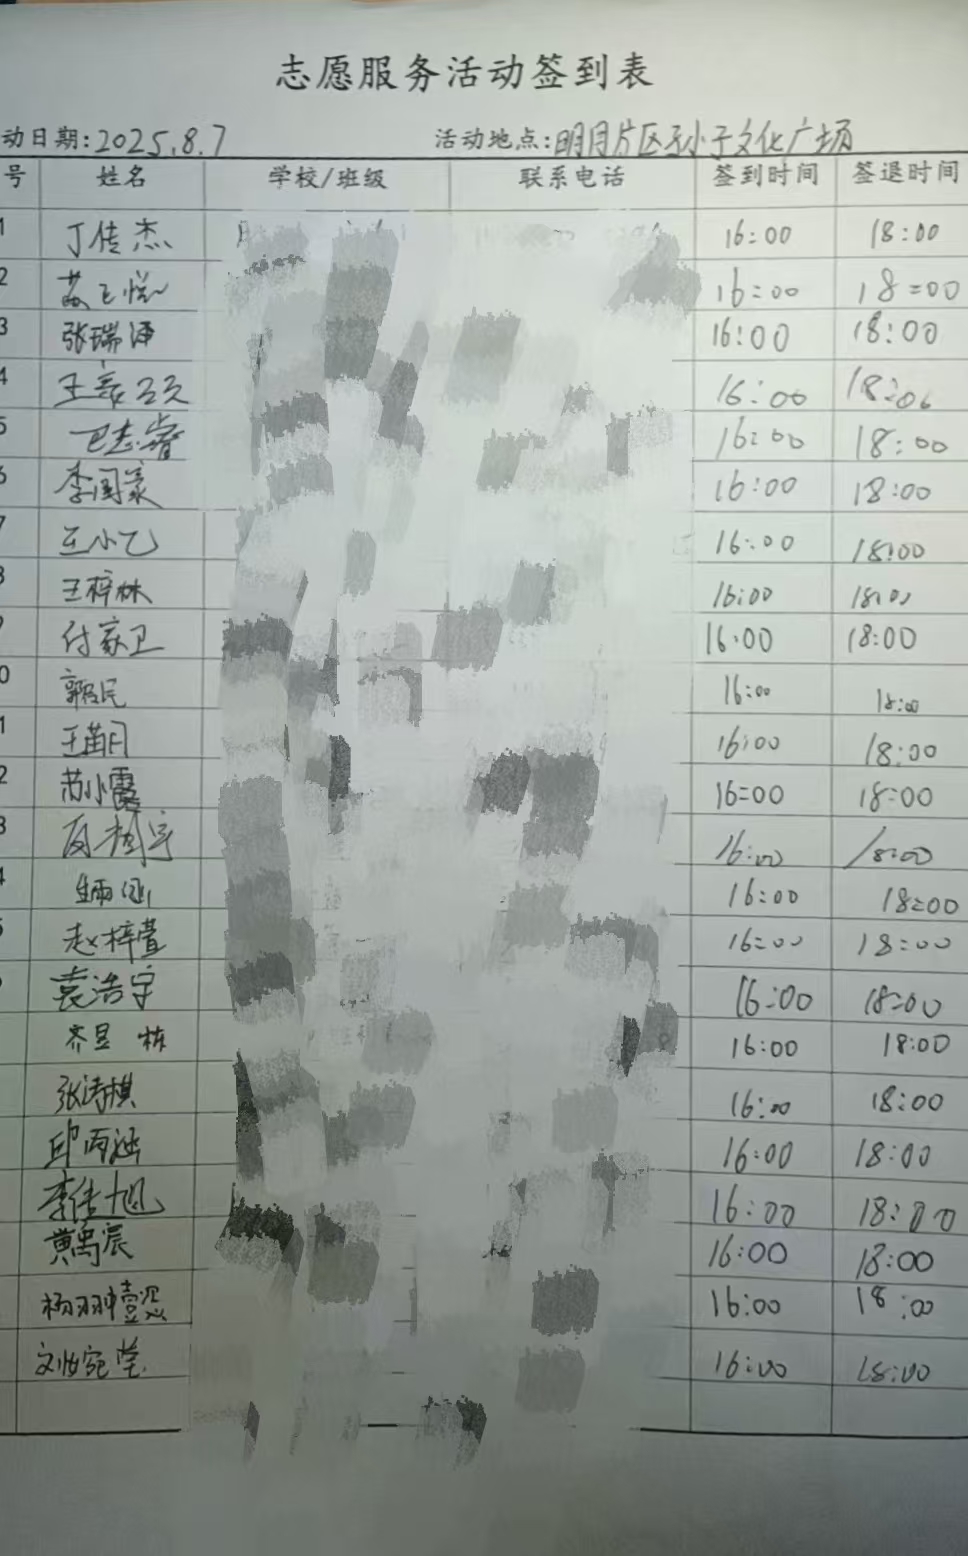 志愿服务活动签到表
动日期:2025.8.7 活动地点:明月片区孙子文化广场
号 姓名 学校/班级 联系电话 签到时间 签退时间
1 丁传杰 16:00 18:00
2 16:00 18:00
3 张瑞泽 16:00 18:00
4 16:00 18:00
5 16:00 18:00
6 李国豪 16:00 18:00
7 王小乙 16:00 18:00
8 王梓林 16:00 18:00
9 付家卫 16:00 18:00
0 16:00 18:00
1 王苗月 16:00 18:00
2 苏小露 16:00 18:00
3 16:00 18:00
4 16:00 18:00
5 赵梓萱 16:00 18:00
袁浩宇 16:00 18:00
齐昱栋 16:00 18:00
张涛棋 16:00 18:00
邱丙涵 16:00 18:00
李佳旭 16:00 18:00
黄禹宸 16:00 18:00
16:00 18:00
16:00 18:00